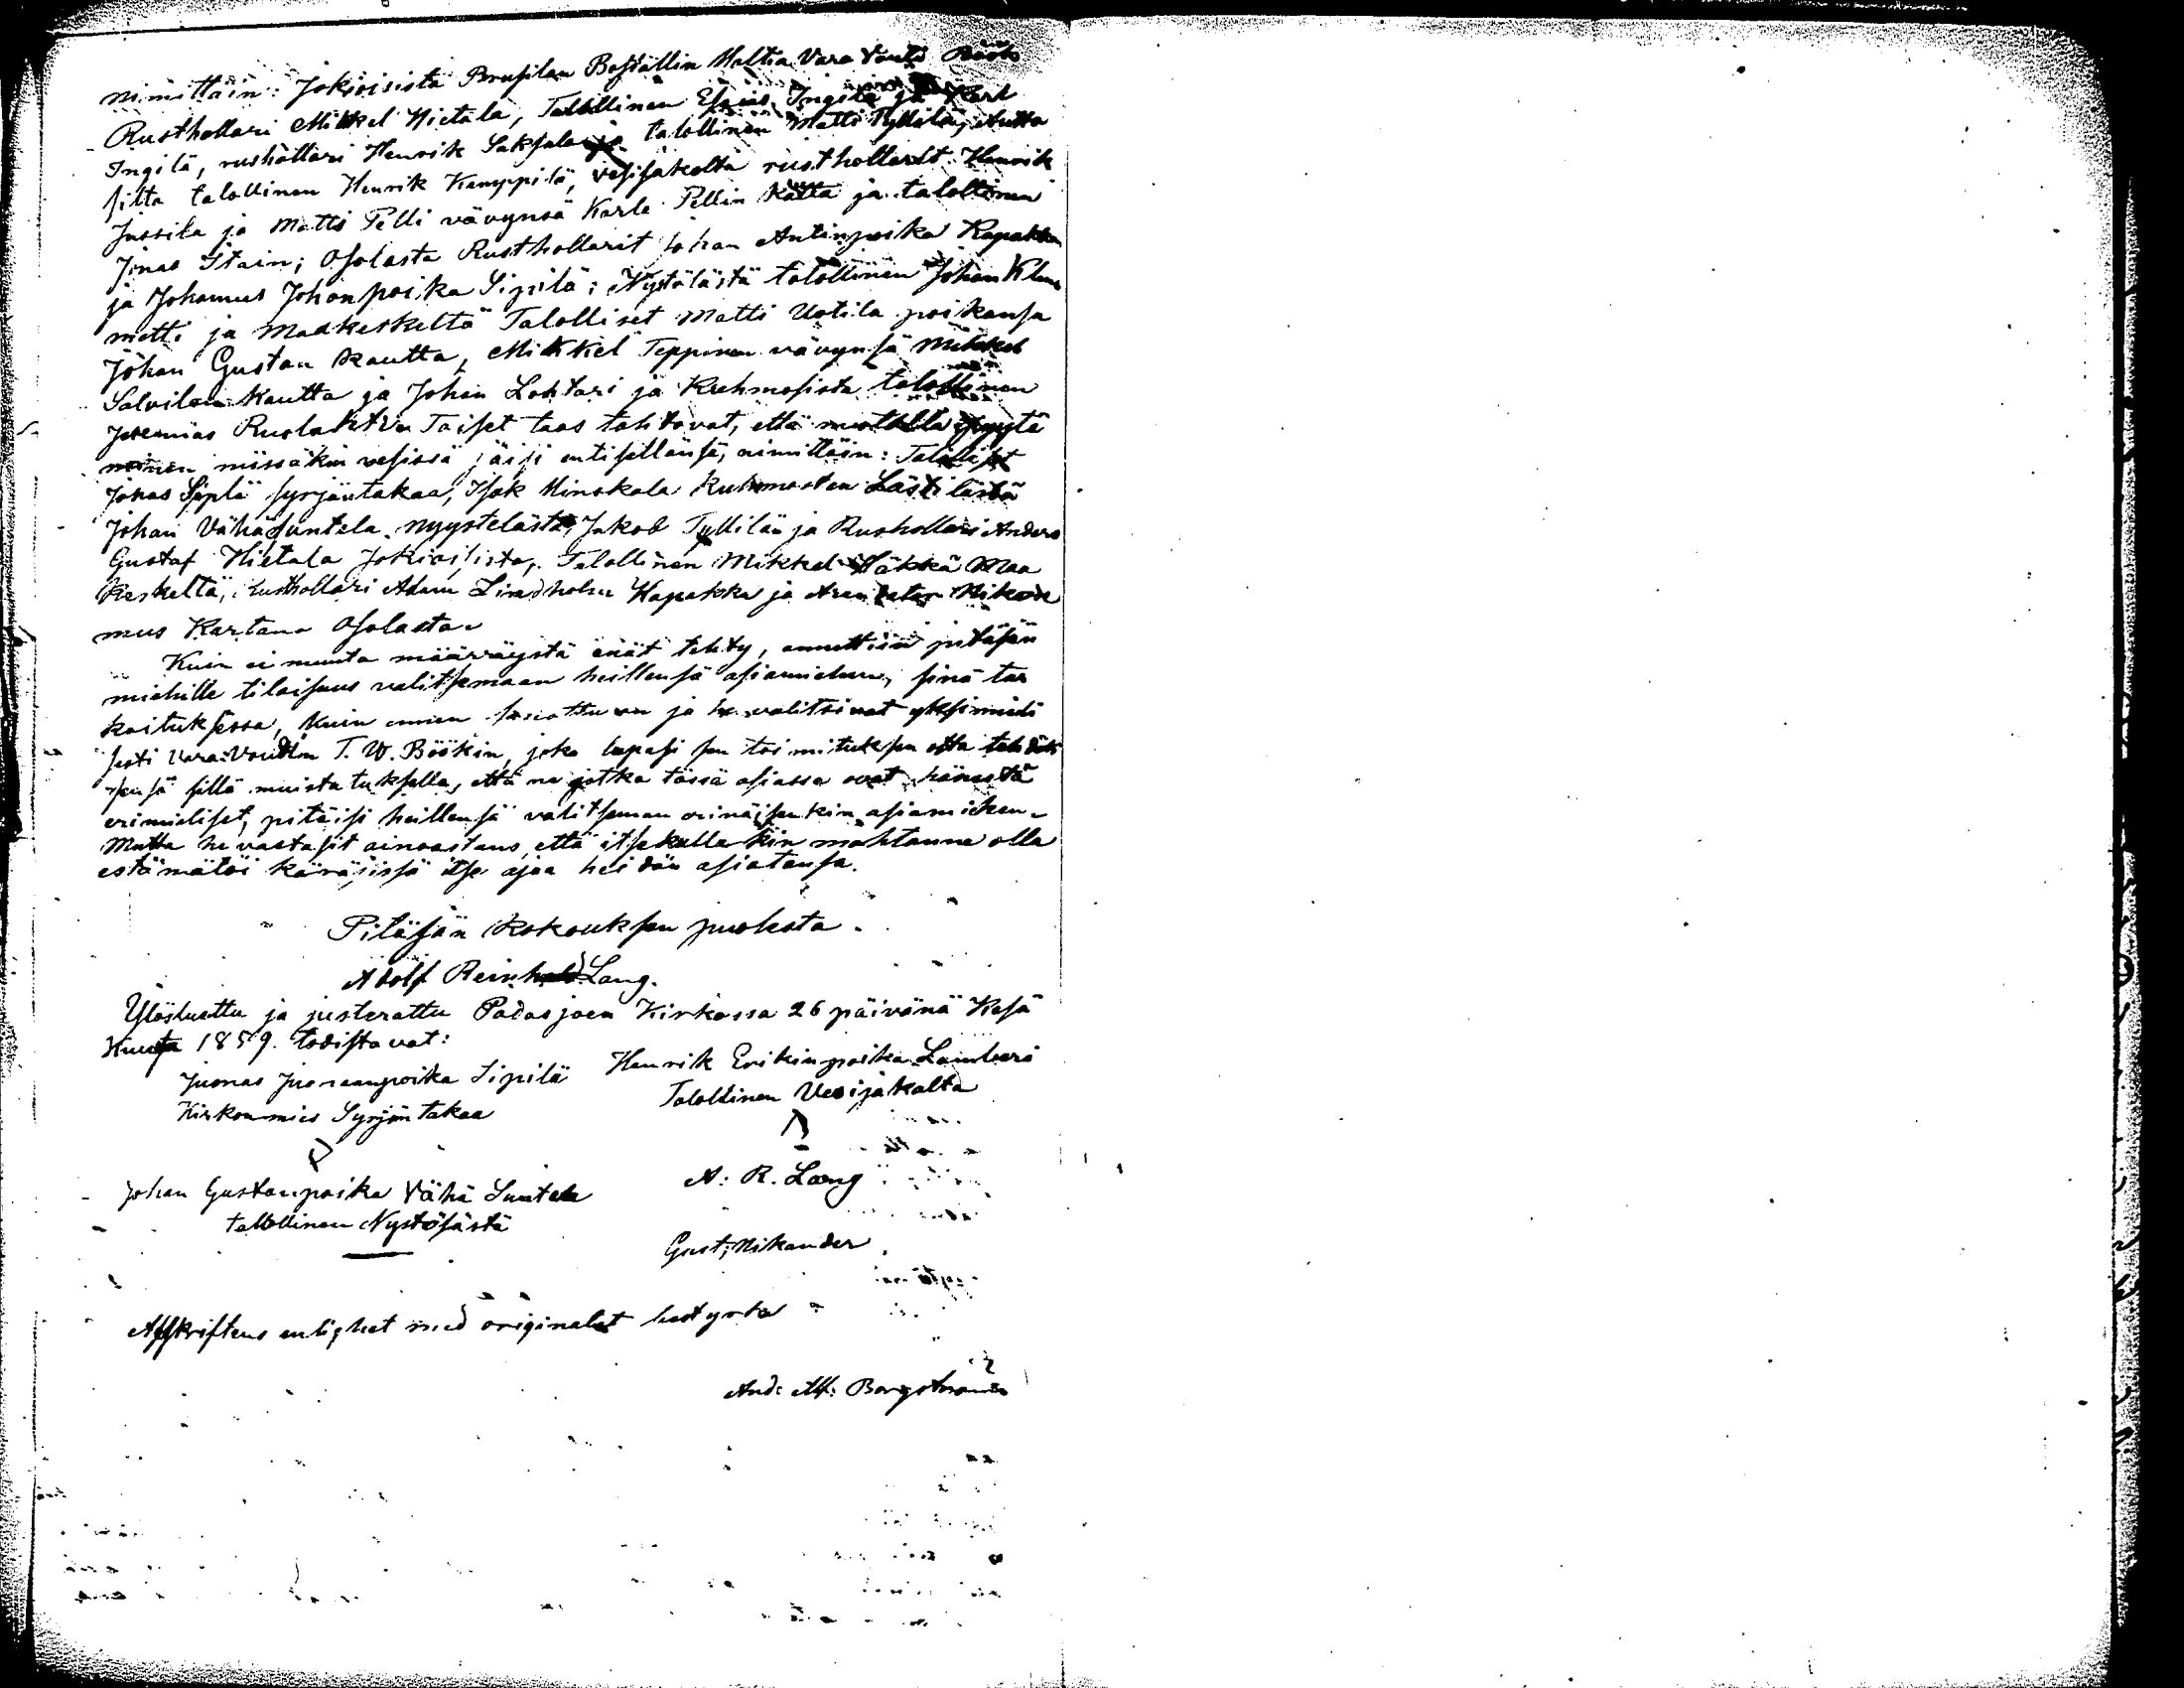 nimittäin: Jokioisista Brusilan Boställin Haltia Vara Vouti Böök
Rusthollari Mikkel Hietala, Talollinen Esaias Ingilä ja Karl
Ingilä, rushållari Henrik Saksala ja talollinen Matti Tyllilä, Autta
silta talollinen Henrik Kamppilä, vesijakolta rusthollarit Henrik
Jussila ja Matti Pelli vävynsä Karle Pellin Kätta ja talollinen
Jonas Stain; Osolasta Rusthollarit Johan Antinpoika Kapakka
ja Johannes Johanpoika Sipilä; Nystölästä talollinen Johan Klem
metti ja Maakeskeltä Talolliset Matti Uotila poikansa
Johan Gustan kautta, Mikkel Teppinen vävynsä Mikkel
Salvilan kautta ja Johan Lohtari ja Kuhmosista talollinen
Jeremias Ruolahti Toiset taas tahtovat, että muikulla
missäkin vesissä jäisi entisellänsä, nimittäin: Talolliset
Jonas Siplä syrjäntakaa, Isak Hinskala Kuhmosten Lästilästä
Johan Vähäsuntela nyystelästä, Jakob Tyllilän ja Rushollari Anders
Gustaf Hietala Jokioisista, Talollinen Mikkel Häkkä Maa
keskeltä, Rusthollari Adam Lindholm Kapakka ja Nikode
mus Kartano Osolasta
Kuin ei muuta määräystä enät tehty, annettiin pitäjän
miehille tilaisuus valitsemaan heillensä asiamiehen, sinä tar
koituksessa, kuin ennen ja he valitsivat yksimieli
sesti Vara-Voudin T. W. Böökin, joka lupasi sen toimituksen otta tehdäk
sensä sillä muistutuksella, että ne jotka tässä asiassa ovat hänestä
erimieliset, pitäisi heillensä valitseman erinäisenkin asiamiehen.
Mutta he vastasit ainoastans, että itsekullakin mahtanne olla
estämätöi käräjissä itse ajaa heidän asiatansa.
Pitäjän Kokouksen puolesta.
Adolf Reinhold Lang.
Ylösluettu ja justerattu Padasjoen Kirkossa 26 päivänä Kesä
Kuuta 1859. todistavat:
Juonas Juonaanpoika Sipilä
Kirkonmies Syrjäntakaa
Henrik Erikinpoika Lamberi
Talollinen Vesijakolta
Johan Gustanpoika Vähä Suntela
talollinen Nystölästä
A: R. Lang
Gust; Nikander
Afskriftens enlighet med originalet bestyrka
And: Alf: Borgström